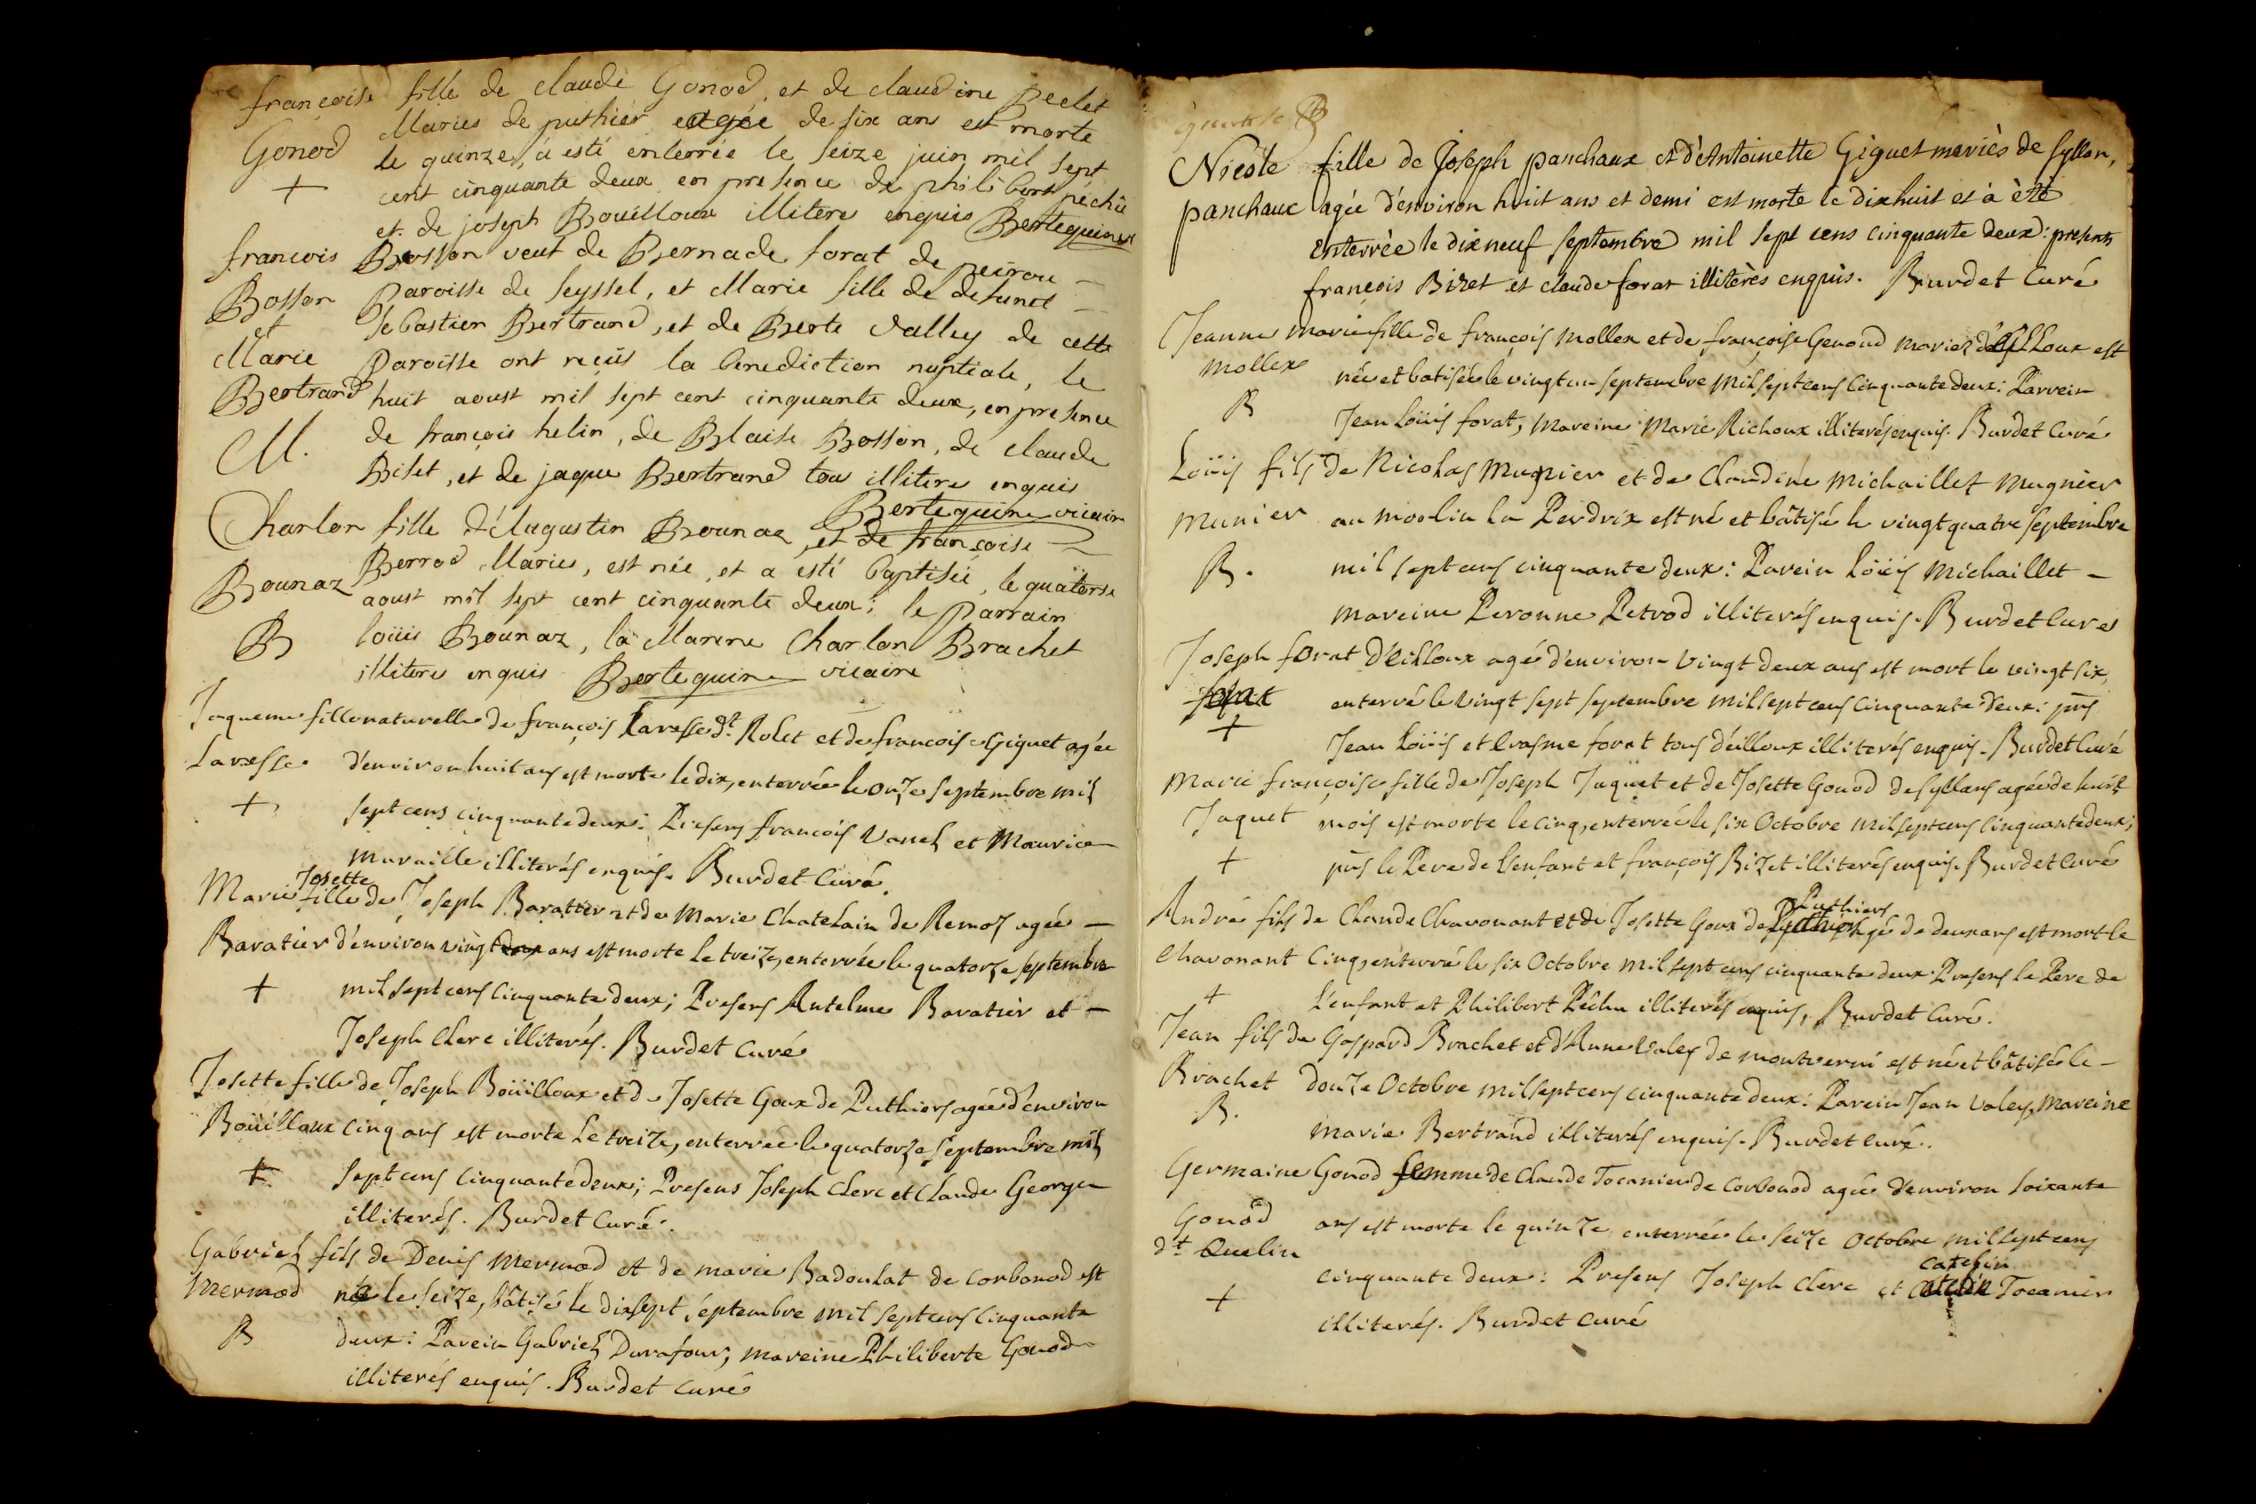 françoise fille de claude Gonod, et de claudine Beclet
Gonod Maries de puthier eagée de six ans est morte
le quinze, a esté enterrée le seize juin mil sept
+ cent cinquante deux en presence de philibert péchu
et de joseph Boüilloux illitere enquis Bertequine
françois Bosson veuf de Bernade forat de peirou
Bosson Paroisse de seyssel, et Marie fille de defunct
et Sebastien Bertrand, et de Berte Valley de cette
Marie Paroisse ont reçüs la benediction nuptiale, le
Bertrand huit aoust mil sept cent cinquante deux, en presence
M. de françois helin, de Blaise Bosson, de claude
Biset, et de jaque Bertrand tou illitere enquis
Bertequine vicaire
Charlon fille d'Augustin Bounaz, et de françoise
Berrod Maries, est née, et a esté baptisée, le quatorse
Bounaz aoust mil sept cent cinquante deux; le Parrain
B loüis Bounaz, la Marene Charlon Brachet
illitere enquis Bertequine vicaire
Jaqueme fille naturelle de françois Lavesse dt. Rolet et de francoise Giguet agée
Lavesse d'environ huit ans est morte le dix, enterrée le onze septembre mil
+ sept cens cinquante deux: Presens francois Vanel et Maurice
Muraille illiterés enquis. Burdet Curé.
Josette
Marie fille de Joseph Baratier et de Marie Chatelain de Remoz agée
Baratier d'environ vingt deux ans est morte le treize, enterrée le quatorze septembre
+ mil sept cens Cinquante deux; Presens Antelme Baratier et
Joseph Clerc illiterés. Burdet Curé
Josette fille de Joseph Boüilloux et de Josette Goux de Puthiers agée d'environ
Boüilloux cinq ans est morte Le treize, enterrée le quatorze Septembre mil
+ sept cens Cinquante deux; Presens Joseph Clerc et Claude George
illiterés. Burdet Curé.
Gabriel fils de Denis Mermod et de marie Badoulat de Corbonod est
Mermod né le seize, bâtisé le dixsept septembre mil sept cens Cinquante
B deux: Parein Gabriel Durafour, mareine Philiberte Gonod
illiterés enquis. Burdet Curé
Nicole fille de Joseph panchaux et d'Antoinette Giguet mariès de syllan,
panchaux agée d'environ huit ans et demi est morte le dixhuit et à èté
enterrèe le dixneuf septembre mil sept cens cinquante deux: presents
françois Bizet et claude forat illitèrès enquis. Burdet Curé
Jeanne Marie fille de françois Mollex et de françoise Genoud Mariez d'éilloux est
Mollex née et batisée le vingt un septembre Mil sept cens Cinquante deux: Parrein
B Jean Loüis forat, Mareine Marie Richoux illiterés enquis. Burdet Curé
Loüis fils de Nicolas Mugnier et de Claudine Michaillet Mugnier
Munier au Moulin La Perdrix est né et bâtisé le vingt quatre septembre
B. mil sept cens cinquante deux: Parein Loüis Michaillet
mareine Peronne Petrod illiterés enquis. Burdet Curé
Joseph forat d'eilloux agé d'environ vingt deux ans est mort le vingt six,
enterré le vingt sept septembre mil sept cens Cinquante deux: pns
+ Jean Loüis et Erasme forat tous d'éilloux illiterés enquis. Burdet Curé
Marie françoise fille de Joseph Jaquet et de Josette Gonod de syllans agée de huit
Jaquet mois est morte le cinq, enterrée le six Octobre Mil sept cens Cinquante deux;
+ pns le Pere de l'enfant et françois Bizet illiterés enquis. Burdet Curé
Puthiers
André fils de Claude Chavonant et de Josette Goux de Puthiers agé de deux ans est mort le
Chavonant Cinq, enterré le six Octobre mil sept cens cinquante deux. Presens le Pere de
+ L'enfant et Philibert Pêchu illiterés enquis, Burdet Curé.
Jean fils de Gaspard Brachet et d'Anne Valey de montverni est né et bâtisé le
Brachet douze Octobre mil sept cens cinquante deux: Parein Jean Valey, Mareine
B. Marie Bertrand illiterés enquis. Burdet Curé.
Germaine Gonod femme de Claude Tocanier de Corbonod agée d'environ soixante
Gonod ans est morte le quinze enterrée le seize Octobre mil sept cens
dt Quelin cinquante deux: Presens Joseph Clerc et Catelin Tocanier
Catelin
+ illiterés. Burdet Curé